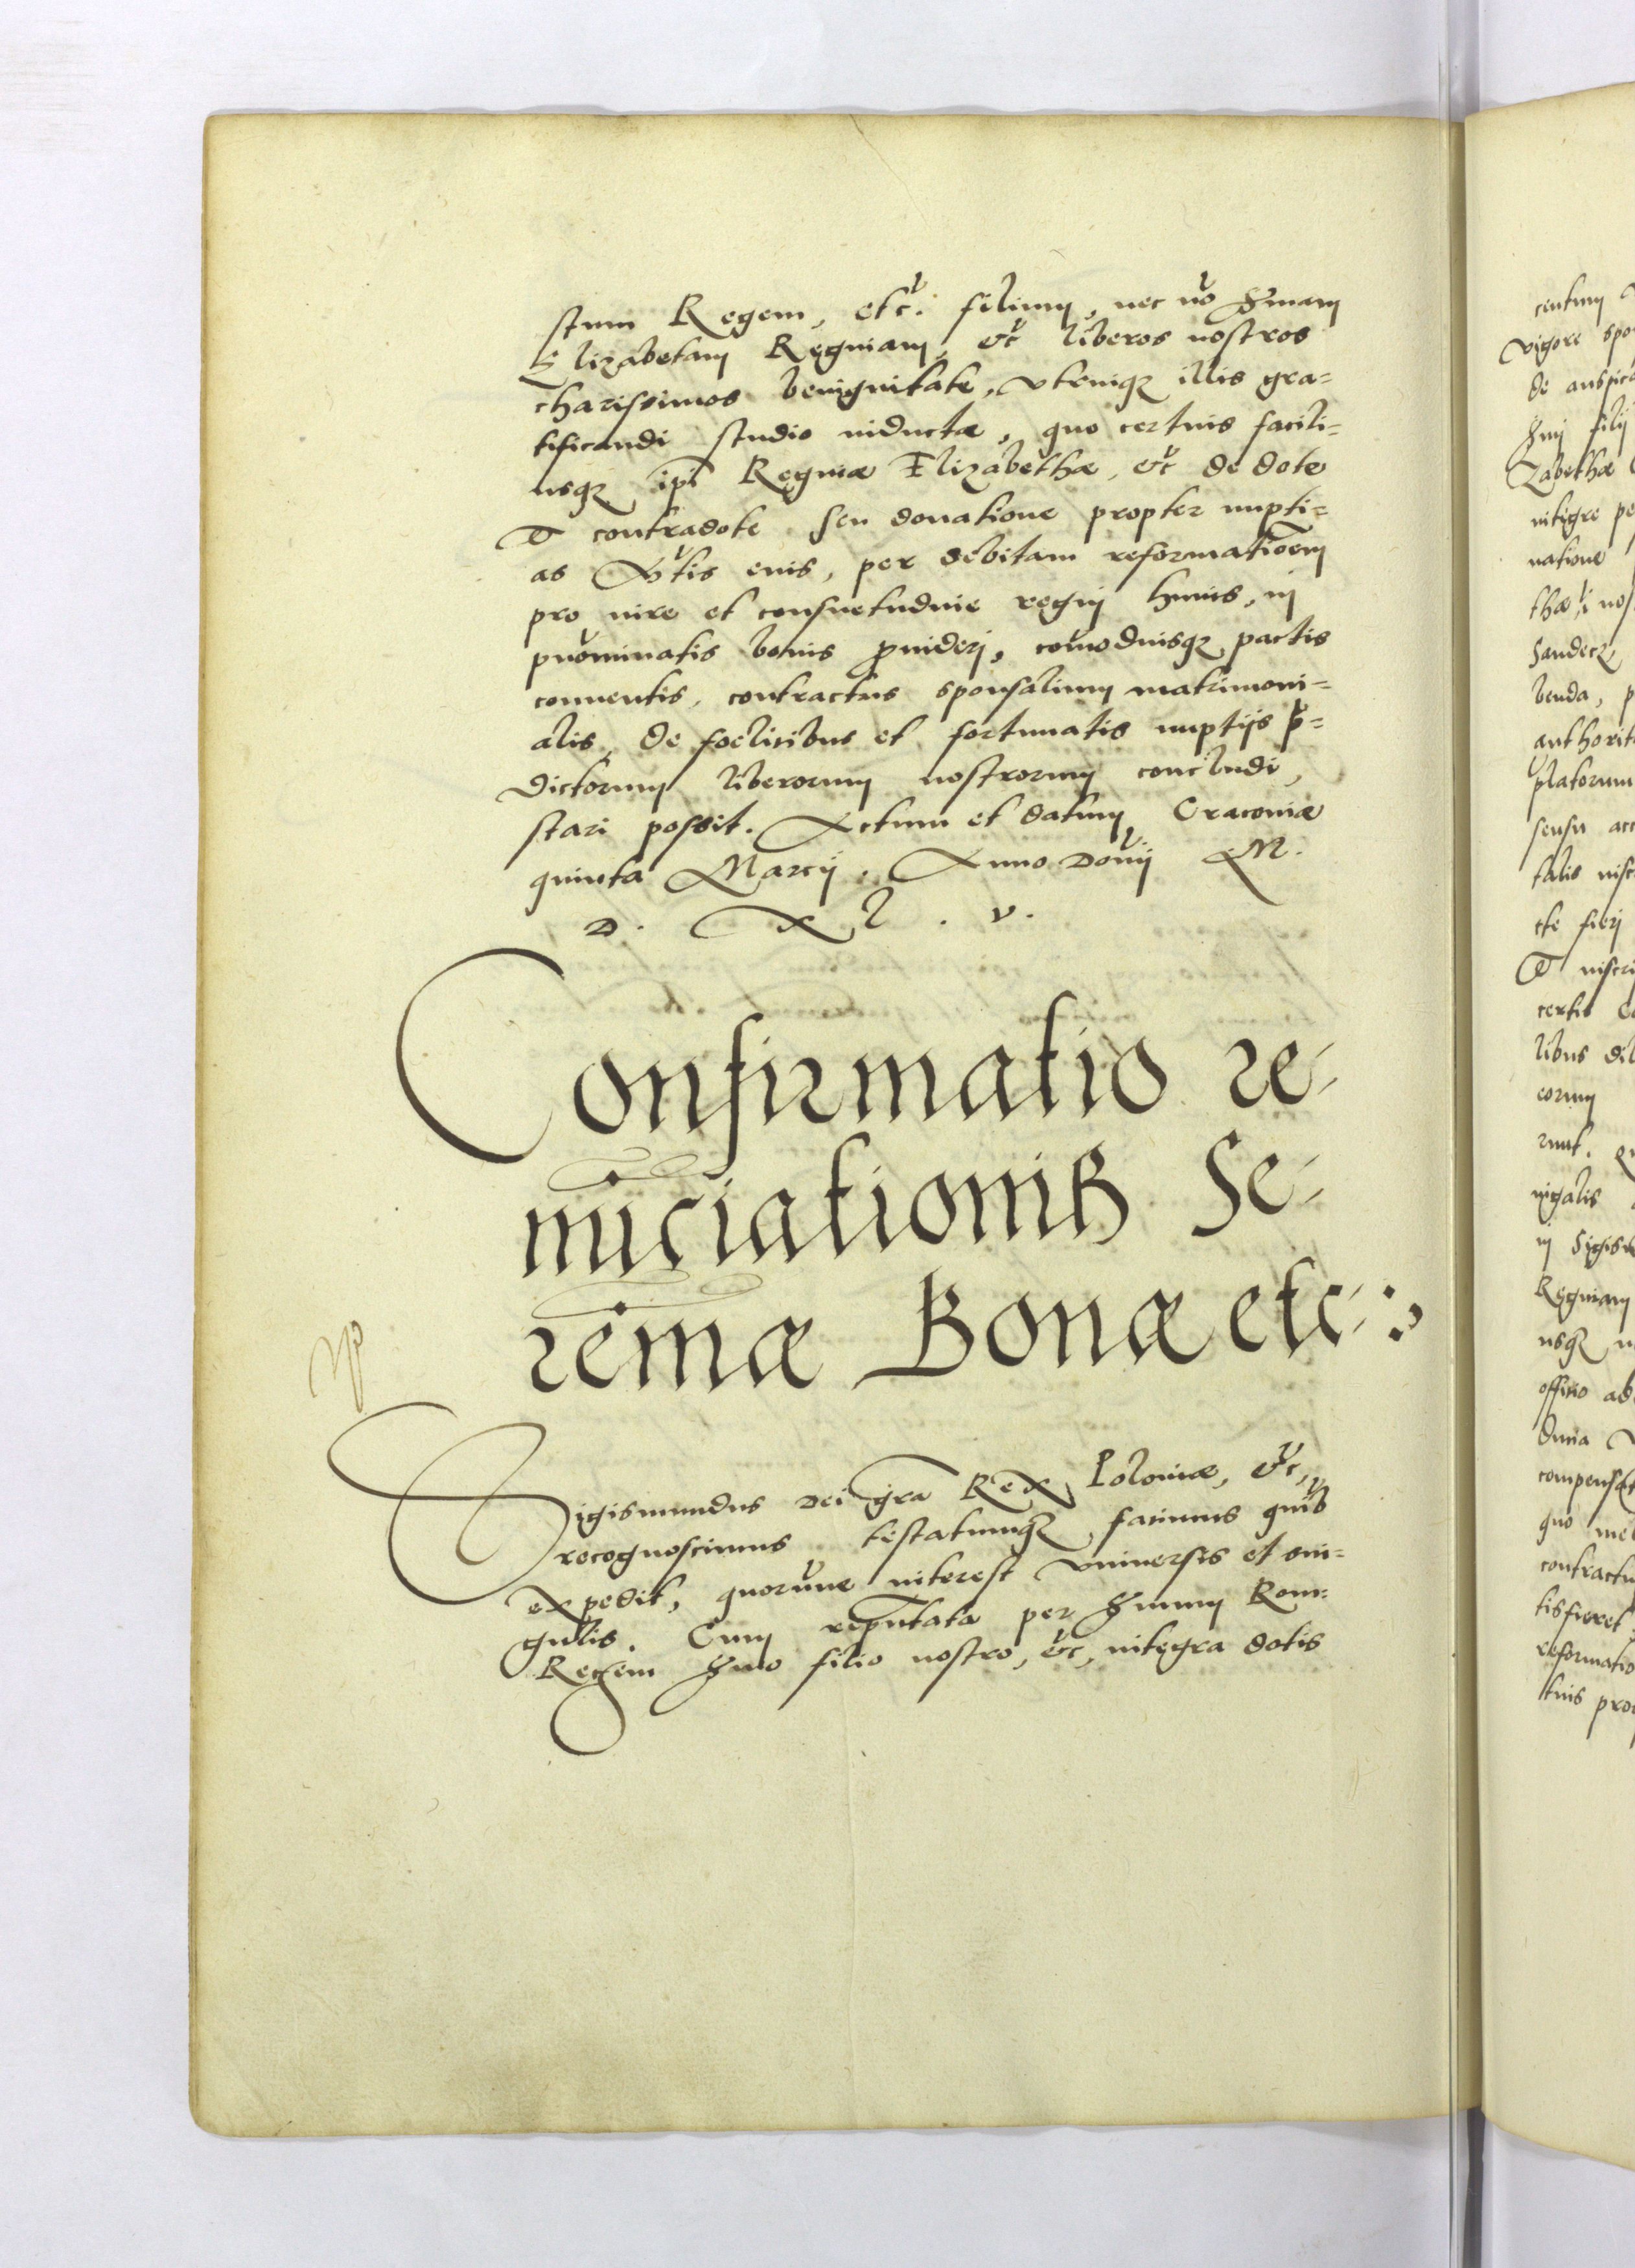 stum Regem, etc. filium, nec nõ Sm̃am
Elizabetam Reginam, etc̃ liberos nostros
charissimos benignitate, vtriuqꝫ illis gra=
tificandi studio inductæ, quo certius facili=
usqꝫ ip̃i Reginæ Elizabethæ, etc̃ de dote
et contradote seu donatione propter nupti=
as Stis eius, per debitam reformatiõem
pro iure et consuetudine regnj huius, in
pnõminatis bonis ꝓuiderj, cõmodiusqꝫ pactis
conuentis, contractus sponsalium matrimoni=
alis, de foelicibus et fortunatis nuptijs p̃=
dictorum liberorum nostrorum concludi,
stari possit. Actum et datum Cracouiæ
quinta Marcij. Anno Domĩ M.
D. XL. v.
Confirmatio re-
nũciationis Se-
reñmæ Bonæ etc:
Sigismundus Dei grã Rex Poloniæ, etc̃,
recognoscimus testatumqꝫ facimus quib̃
expedit, quorũue interest vniuersis et sin=
gulis. Cum reputata per Sm̃um Rom:
Regem Sm̃o filio nostro, etc̃, integra dotis
centum
vigore spo
de auspica
Sm̃j filij
Zabethæ
integre pe
natione
thæ
Sandecz
benda, p
authorit
p̃latorum
sensu acc
talis insc
cte fierj
et inscri
certis
libus dil
eorum
runt.
ingalis
in Sigism
Reginam
usqꝫ
officio ad
dinia
compensat
quo mel
contractu
tisfieret
reformatio
tuis pro